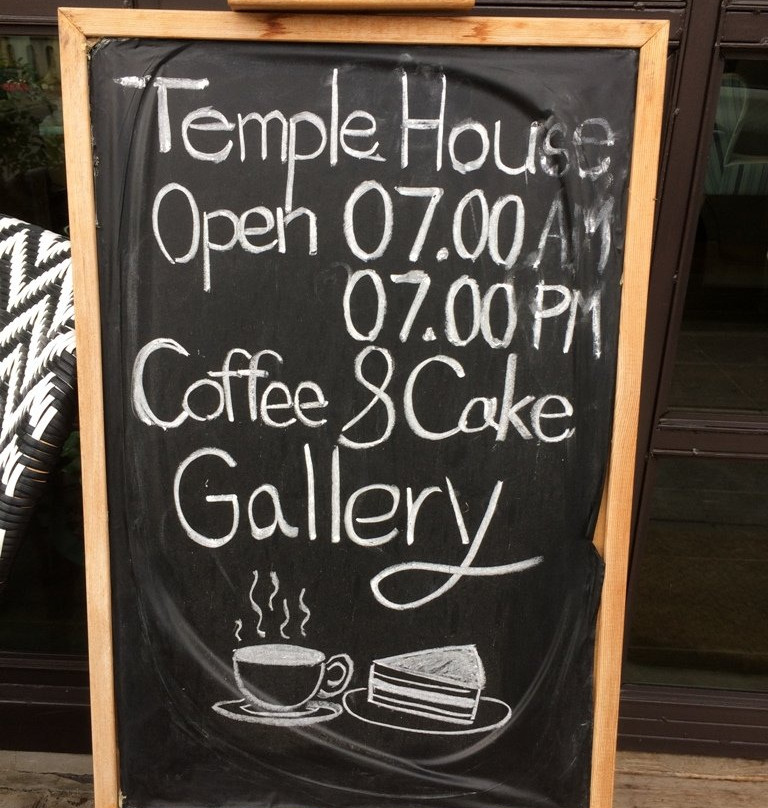 Temple House
Open 07.00 AM
07.00 PM
Coffee & Cake
Gallery